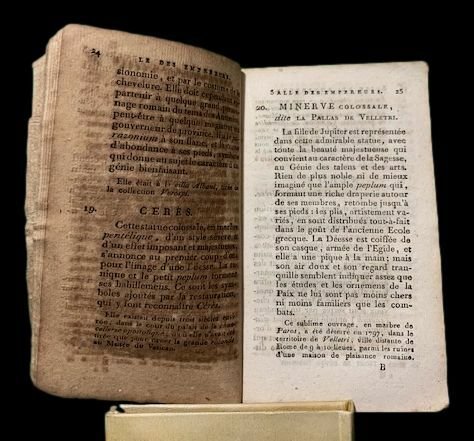 24
LE DES EMPEREURS.
sionomie, et par le costume de
chevelure. Elle doit cependant
partenir à quelque grand
nage romain du tems des
peut-être à quelqu'ancien
gouverneur de province.
razonium à son flanc, et
d'abondance à ses pieds,
qui donne au sujet le caractère
génie bienfaisant.
Elle était à la villa Albani, dans
la collection
19. CÉRÈS.
Cette statue colossale, en marbre
pentélique, d'un style sévère
d'un effet imposant et majestueux
s'annonce au premier coup d'œil
pour l'image d'une Déesse. La
nique et le petit peplum forment
ses habillemens. Ce sont les sym-
boles ajoutés par la restauration,
qui y font reconnaître Cérès.
Elle existait depuis trois siècles
dans la cour du palais de la
d'où elle a
que pour
au Musée du Vatican.
SALLE DES EMPEREURS. 25
20. MINERVE COLOSSALE,
dite LA PALLAS DE VELLETRI.
La fille de Jupiter est représentée
dans cette admirable statue, avec
toute la beauté majestueuse qui
convient au caractère de la Sagesse,
au Génie des talens et des arts.
Rien de plus noble ni de mieux
imaginé que l'ample peplum qui,
formant une riche draperie autour
de ses membres, retombe jusqu'à
ses pieds : les plis, artistement va-
riés, en sont distribués tout-à-fait
dans le goût de l'ancienne Ecole
grecque. La Déesse est coiffée de
son casque, armée de l'Egide, et
elle a une pique à la main ; mais
son air doux et son regard tran-
quille semblent indiquer assez que
les études et les ornemens de la
Paix ne lui sont pas moins chers
ni moins familiers que les com-
bats.
Ce sublime ouvrage, en marbre de
Paros, a été déterré en 1797, dans le
territoire de Velletri, ville distante de
Rome de 9 à 10 lieues, parmi les ruines
d'une maison de plaisance romaine.
B